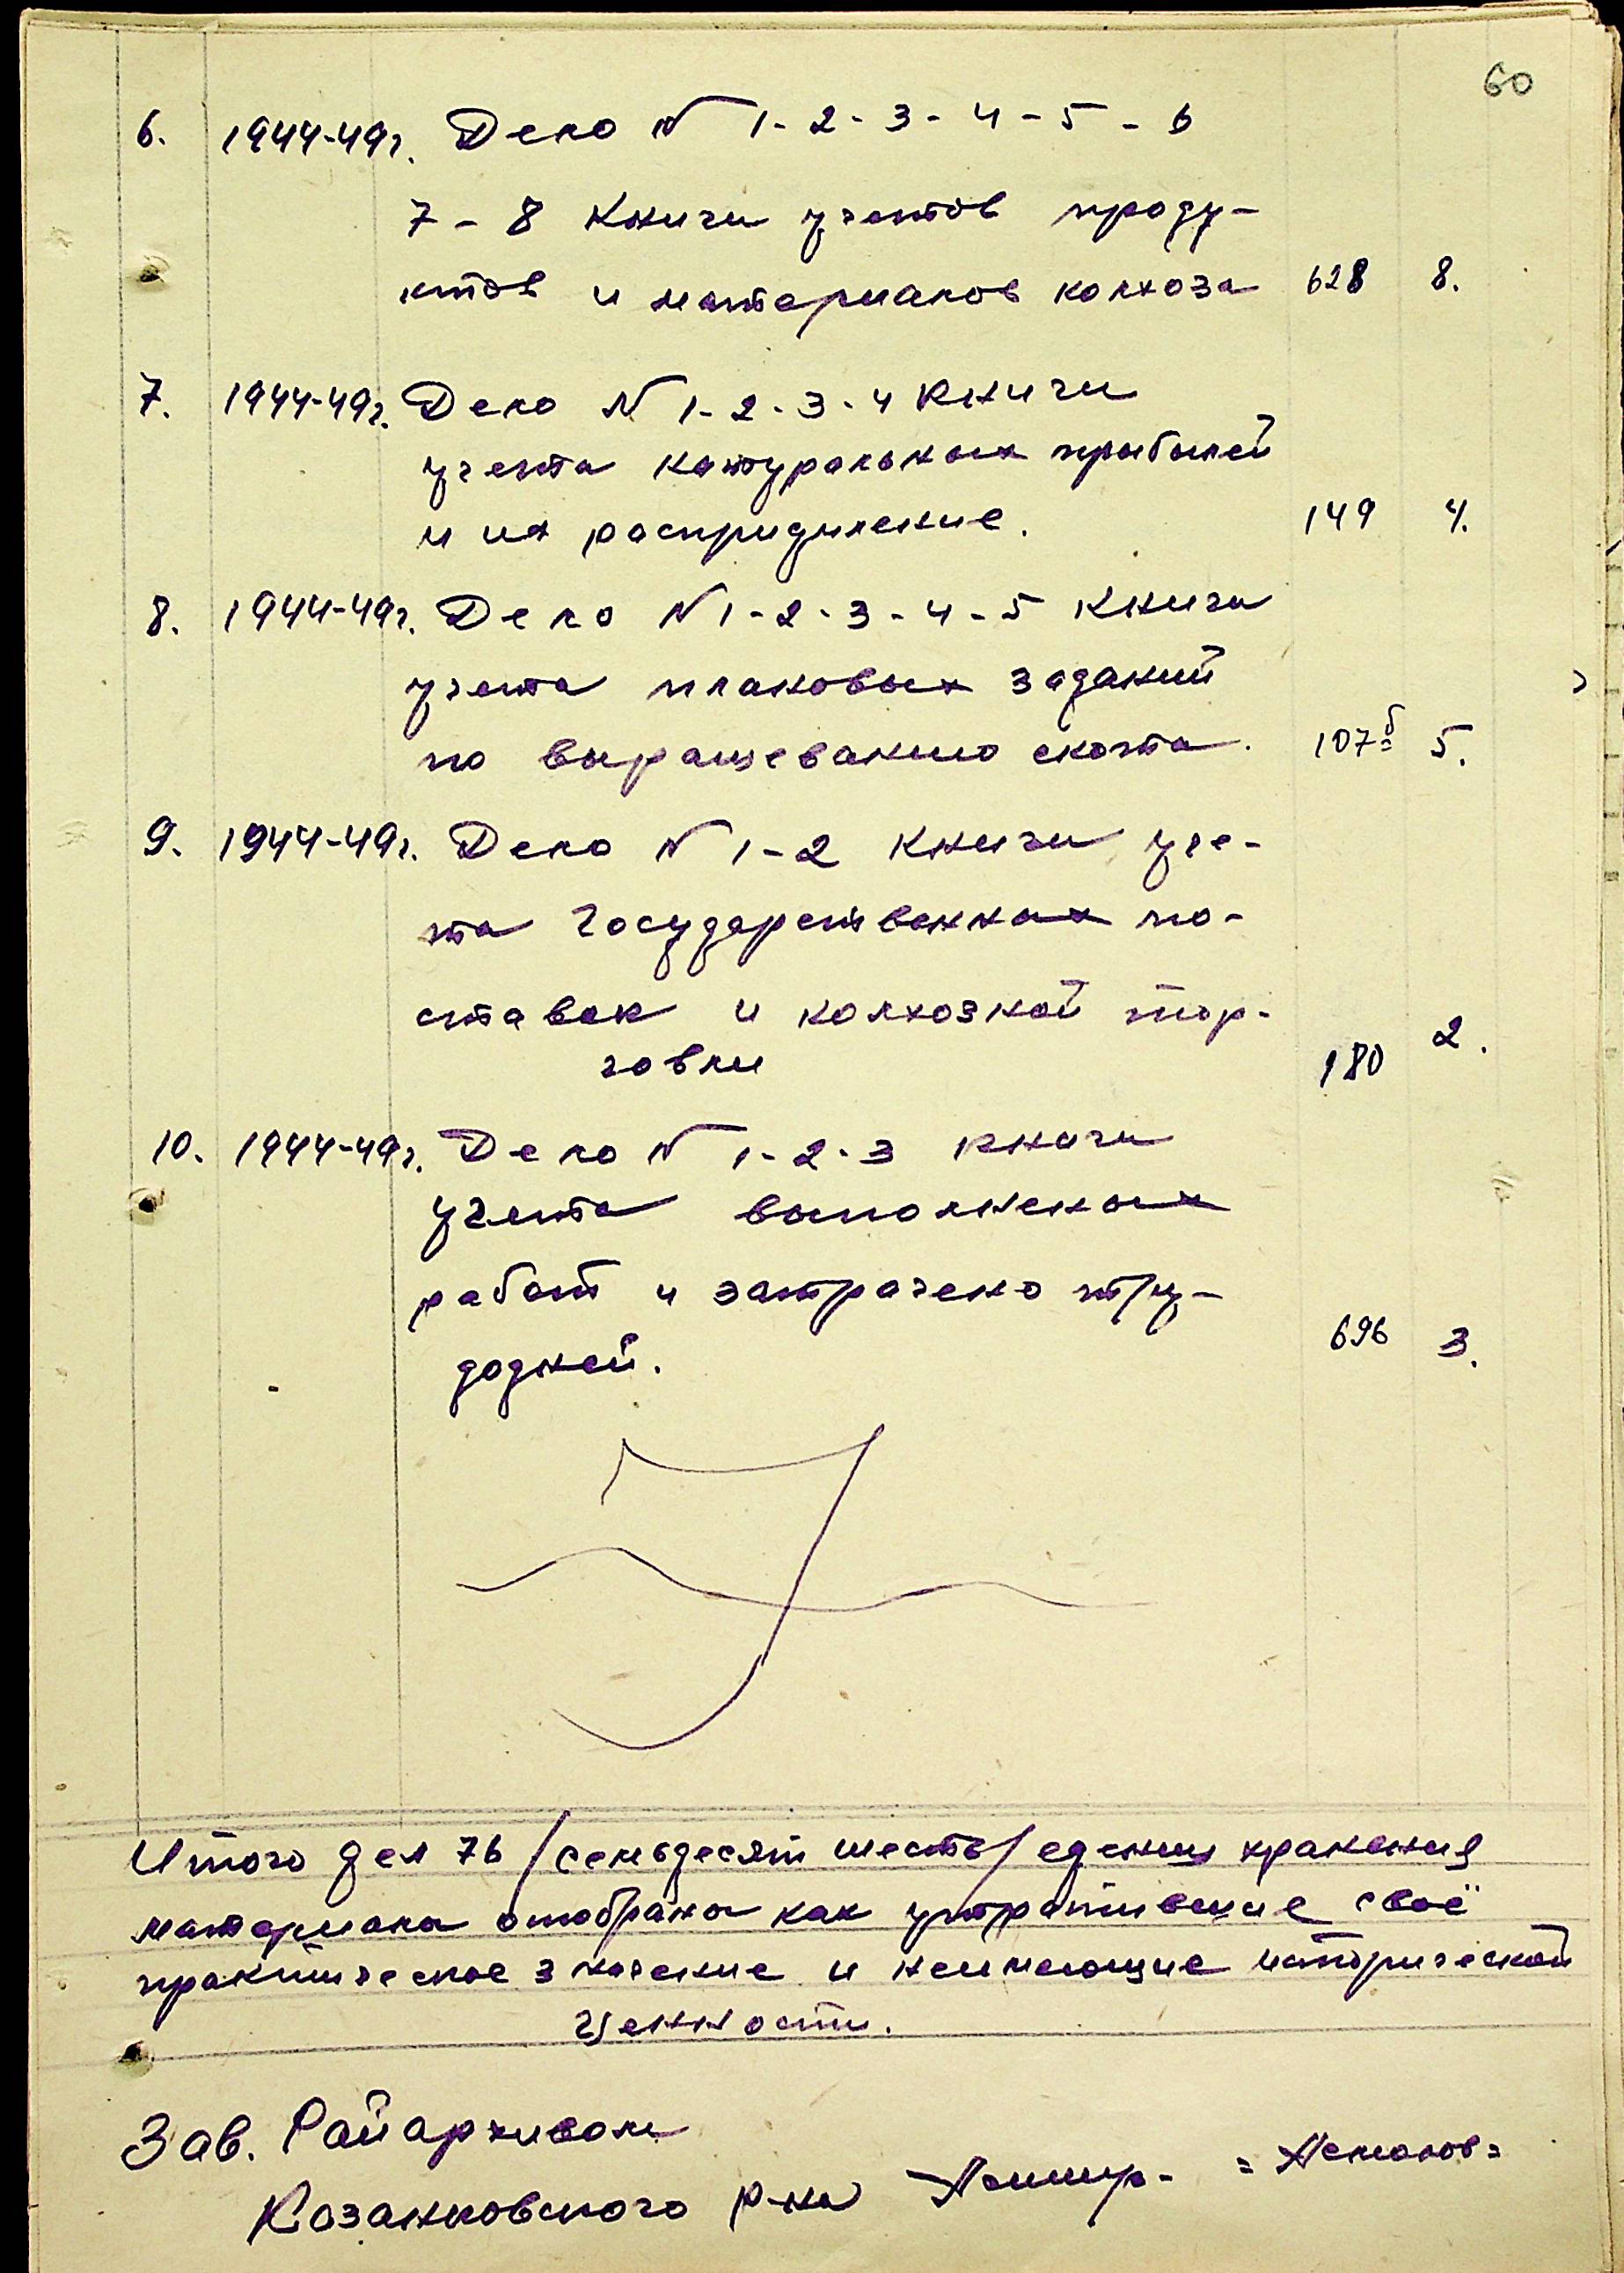 60
6. 1944-49г. Дело N 1-2-3-4-5-6
7-8 Книги учетов проду-
ктов и материалов колхоза 628 8.
7. 1944-49г. Дело N 1-2-3-4 Книги
учета натуральных прибылей
и их распридиление. 149 4.
8. 1944-49г. Дело N 1-2-3-4-5 Книги
учета плановых заданий
по выращеванию скота. 107б 5.
9. 1944-49г. Дело N 1-2 Книги уче-
та Государственных по-
ставок и колхозной тор-
говли 180 2.
10. 1944-49г. Дело N 1-2-3 Книги
учета выполненых
работ и затрачено тру-
додней. 696 3.
Итого дел 76 /семьдесят шесть/ едениц хранения
материала отобрана как утратившие своё
практическое значение и неимеющие исторической
ценности.
Зав. Райархивом
Казанковского р-на